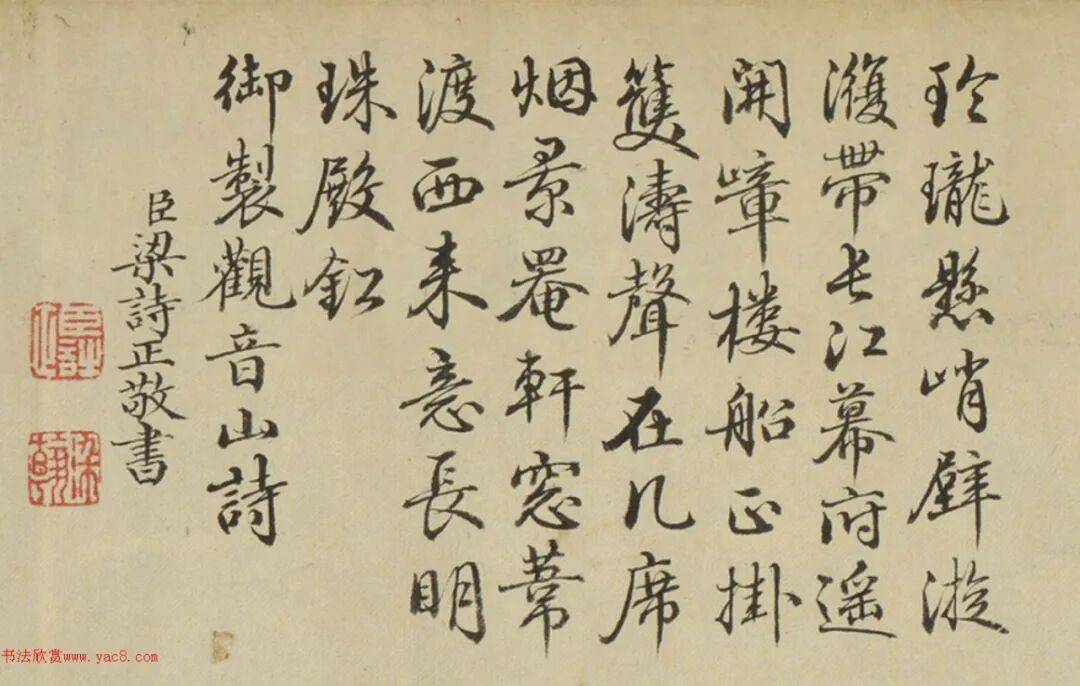 玲瓏懸峭壁漩
澓帶長江幕府遥
開嶂樓船正掛
䉶濤聲在几席
烟景罨軒窓葦
渡西来意長明
珠殿釭
御製觀音山詩
臣梁詩正敬書
书法欣赏www.yac8.com